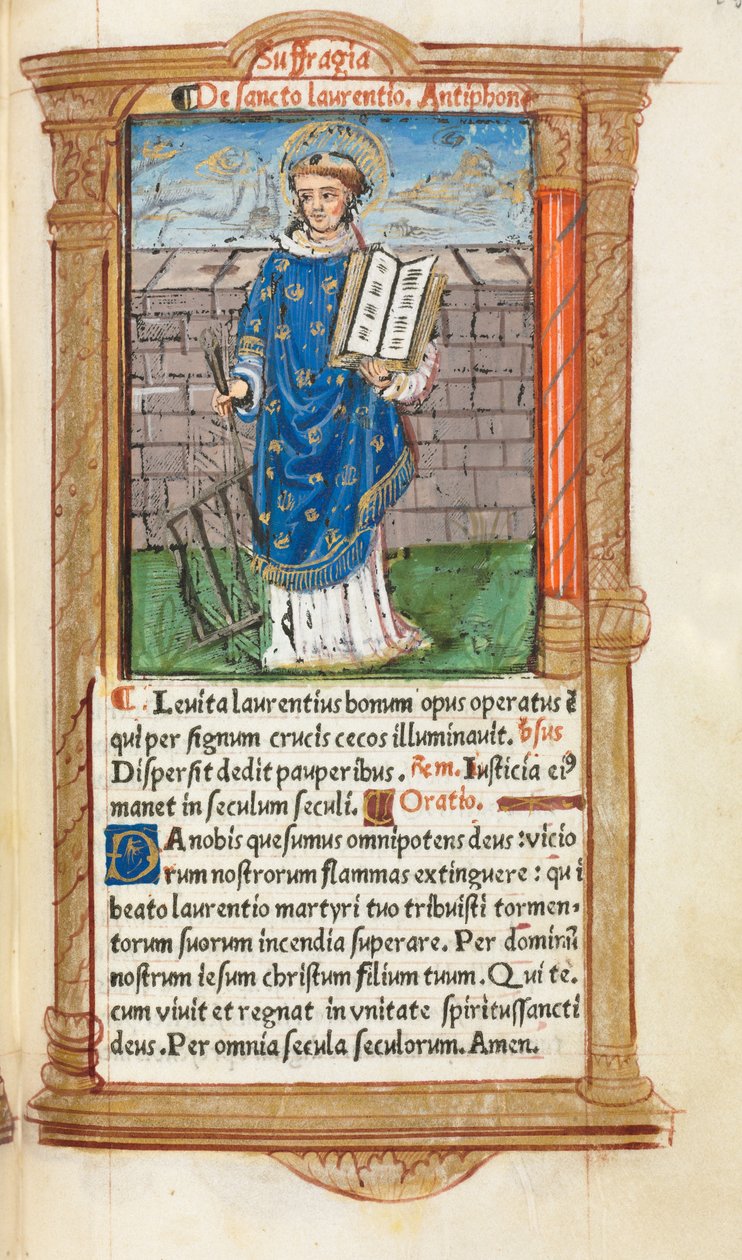 Suffragia
De sancto laurentio. Antiphona
Levita laurentius bonum opus operatus ē
qui per signum crucis cecos illuminavit. v̄sus
Dispersit dedit pauperibus. R̄em. Iusticia eiꝰ
manet in seculum seculi. Oratio.
DA nobis quesumus omnipotens deus : vicio
rum nostrorum flammas extinguere : qui
beato laurentio martyri tuo tribuisti tormen-
torum suorum incendia superare. Per dominū
nostrum iesum christum filium tuum. Qui te.
cum vivit et regnat in vnitate spiritussancti
deus. Per omnia secula seculorum. Amen.